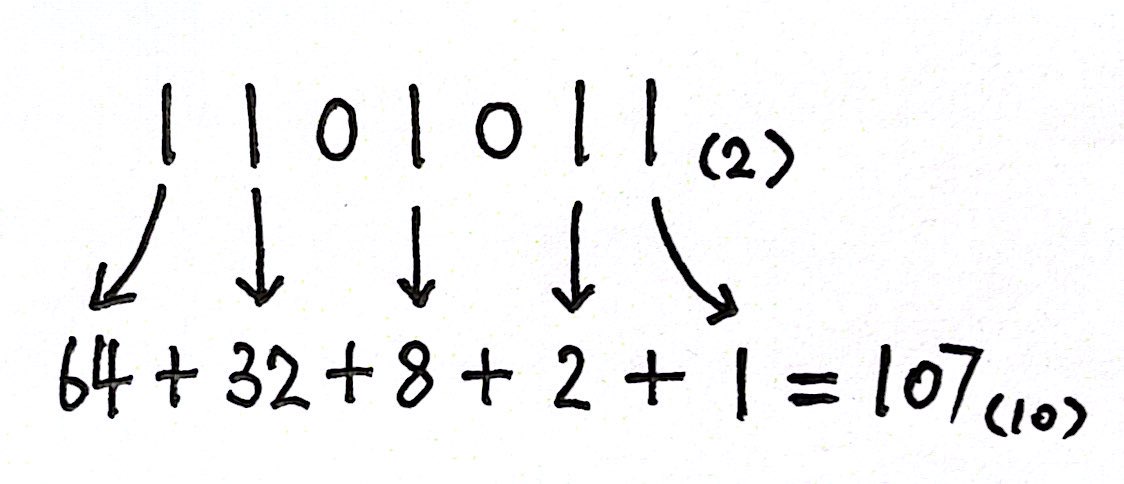 1 1 0 1 0 1 1 (2)
64 + 32 + 8 + 2 + 1 = 107 (10)